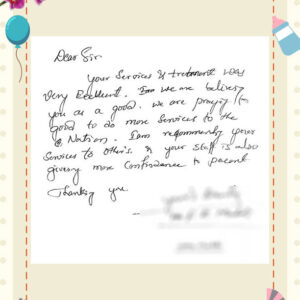 Dear Sir.
Your Services & tretement was
Very Excellent. I am we are beliving
you as a good. we are praying to
good to do more Services to the
Nation. I am recommending your
Services to other's. & your staff is also
giveing more Confindance to pacent
Thanking you